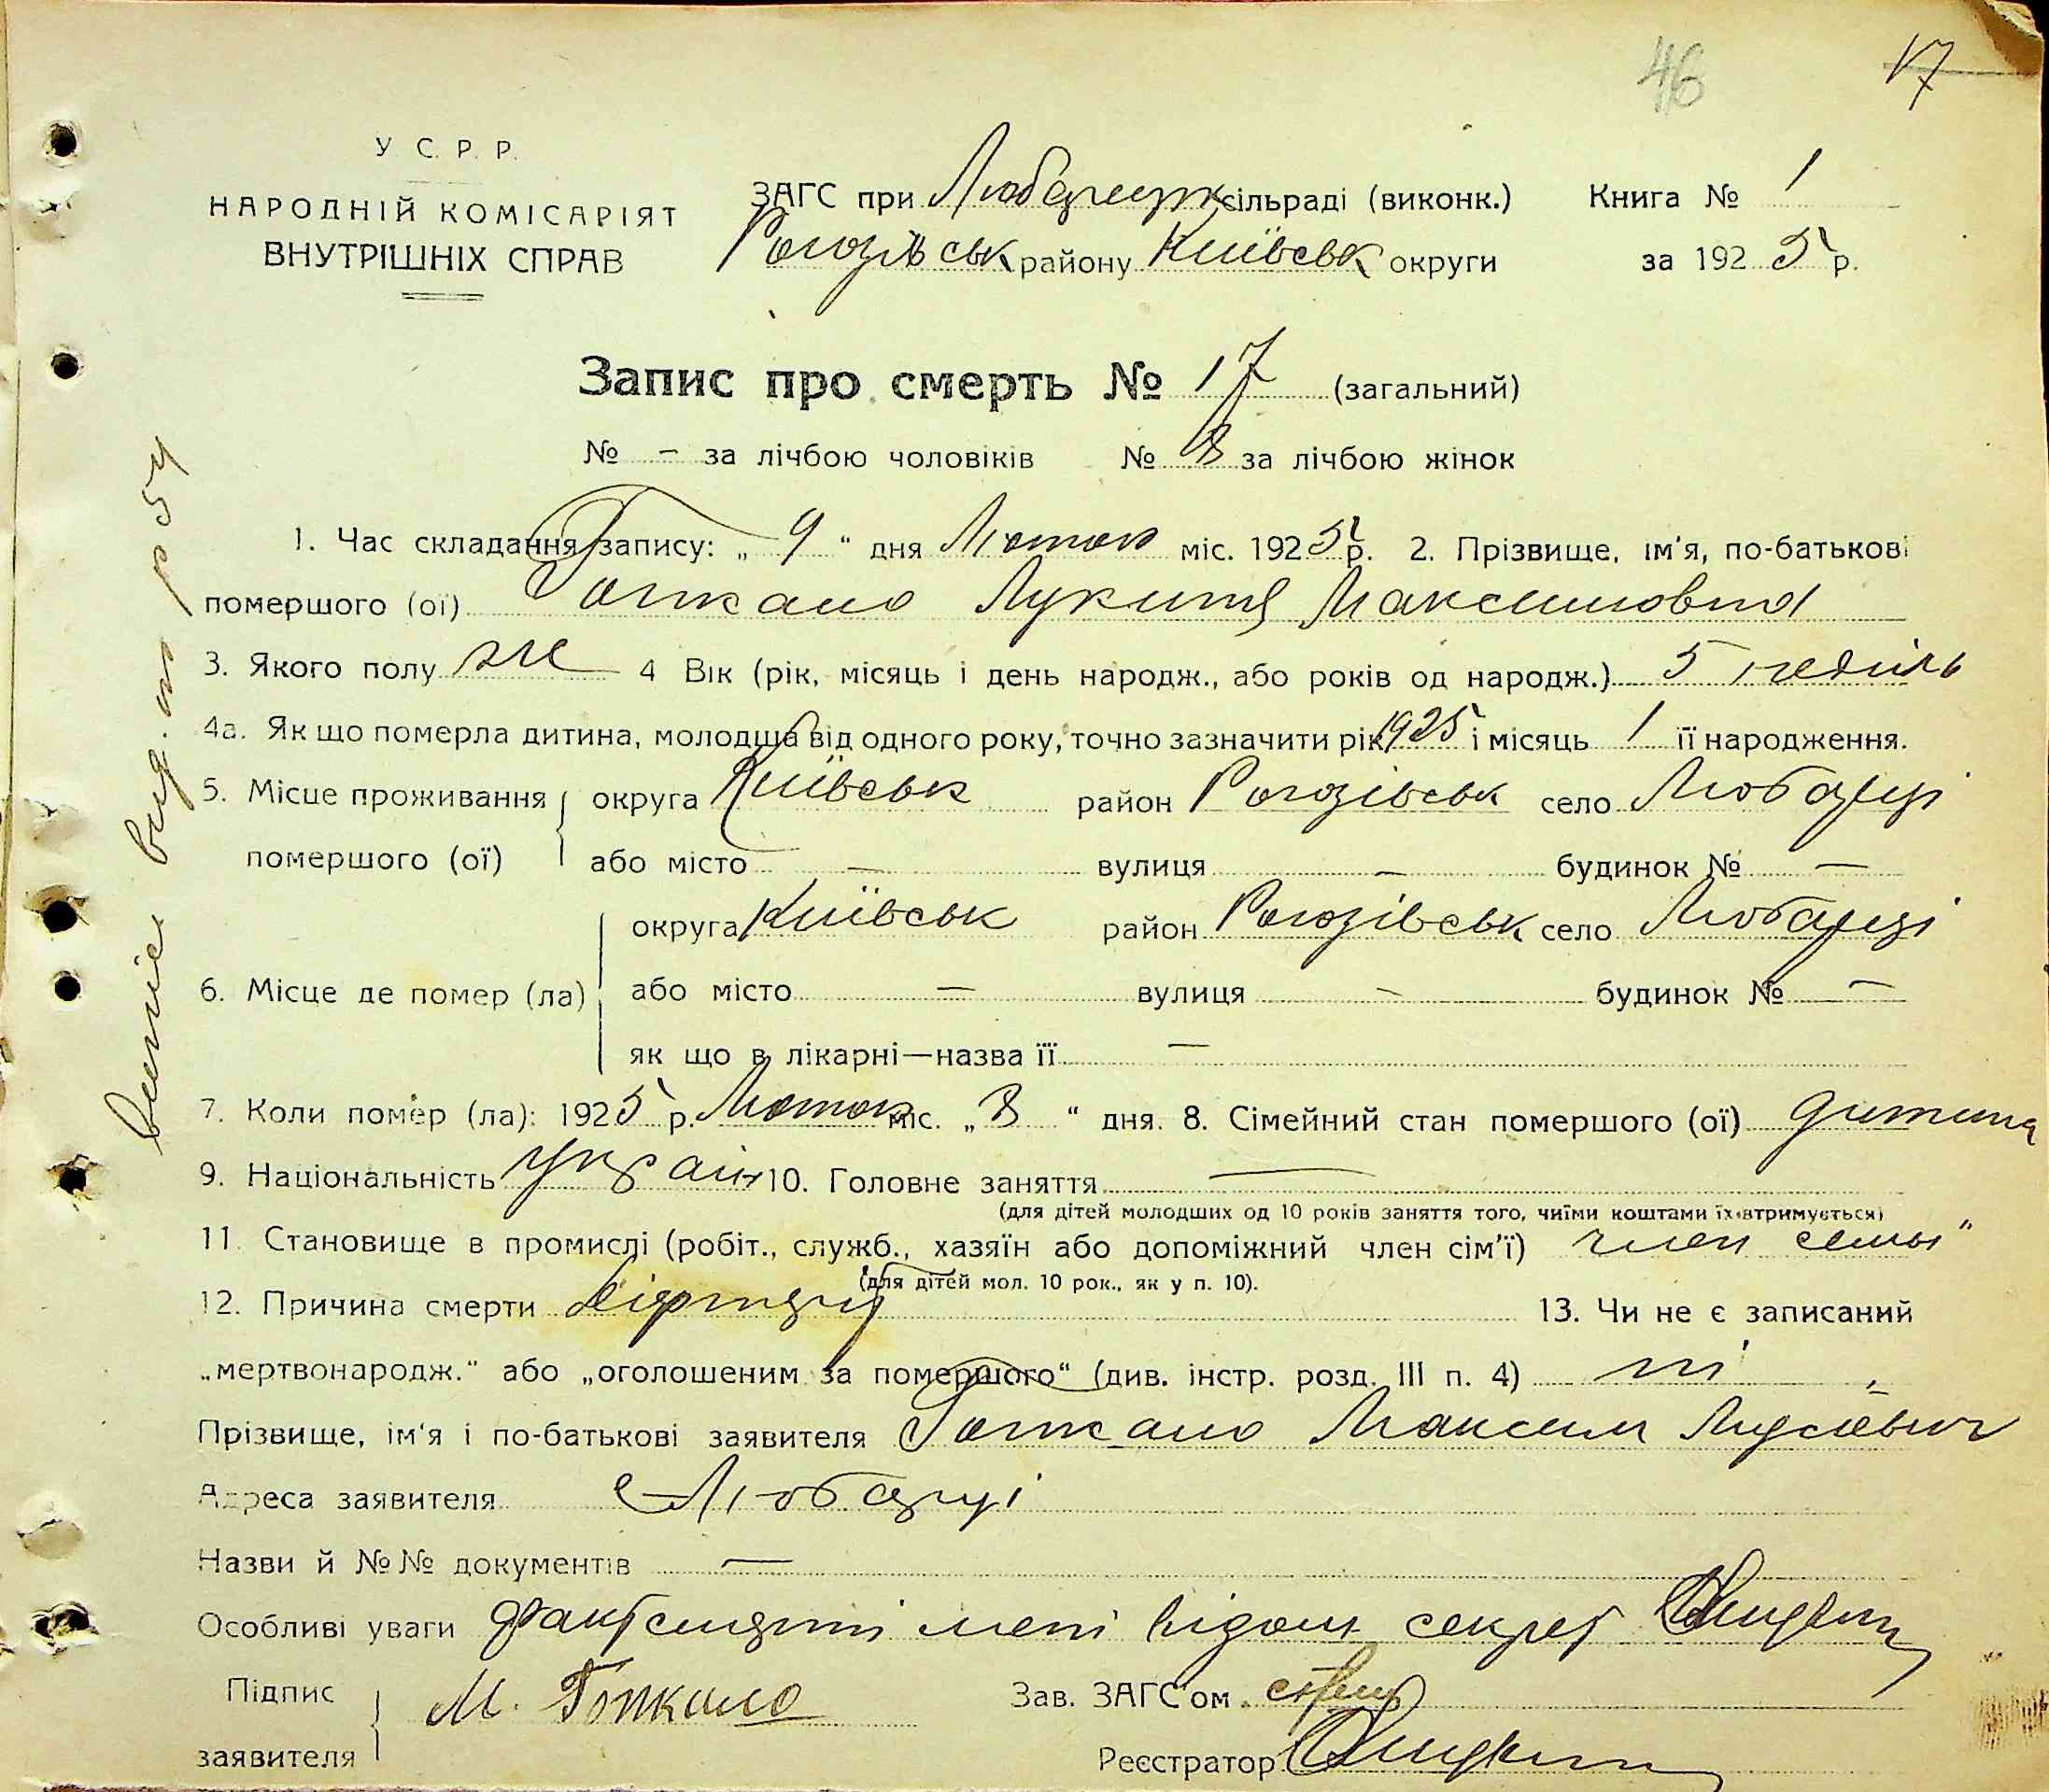 46 17
У С. Р. Р.
НАРОДНІЙ КОМІСАРІЯТ
ВНУТРІШНІХ СПРАВ
ЗАГС при Любарецьк сільраді (виконк.)
Рогозівськ району Київськ округи
Книга № 1
за 1925 р.
Запис про смерть № 17 (загальний)
№ – за лічбою чоловіків № 8 за лічбою жінок
1. Час складання запису: „ 9 “ дня Лютого міс. 1925 р. 2. Прізвище, ім'я, по-батькові
помершого (ої) Гопкало Лукина Максимовна
3. Якого полу ж 4 Вік (рік, місяць і день народж., або років од народж.) 5 неділь
4а. Як що померла дитина, молодша від одного року, точно зазначити рік 1925 і місяць 1 її народження.
5. Місце проживання округа Київськ район Рогозівськ село Любарці
помершого (ої) або місто — вулиця – будинок № —
округа Київськ район Рогозівськ село Любарці
6. Місце де помер (ла) або місто — вулиця – будинок № —
як що в лікарні—назва її —
7. Коли помер (ла): 1925 р. Лютого міс. „ 8 “ дня. 8. Сімейний стан помершого (ої) дитина
9. Національність україн 10. Головне заняття —
(для дітей молодших од 10 років заняття того, чиїми коштами їх втримується)
11. Становище в промислі (робіт., служб., хазяїн або допоміжний член сім'ї) член семьи
(для дітей мол. 10 рок., як у п. 10).
12. Причина смерти 13. Чи не є записаний
„мертвонародж.“ або „оголошеним за помершого“ (див. інстр. розд. III п. 4) ні
Прізвище, ім'я і по-батькові заявителя Гопкало Максим
Адреса заявителя с Любарці
Назви й №№ документів —
Особливі уваги факт смерти мені відом секрет
Підпис
заявителя М. Гопкало
Зав. ЗАГС'ом
Реєстратор